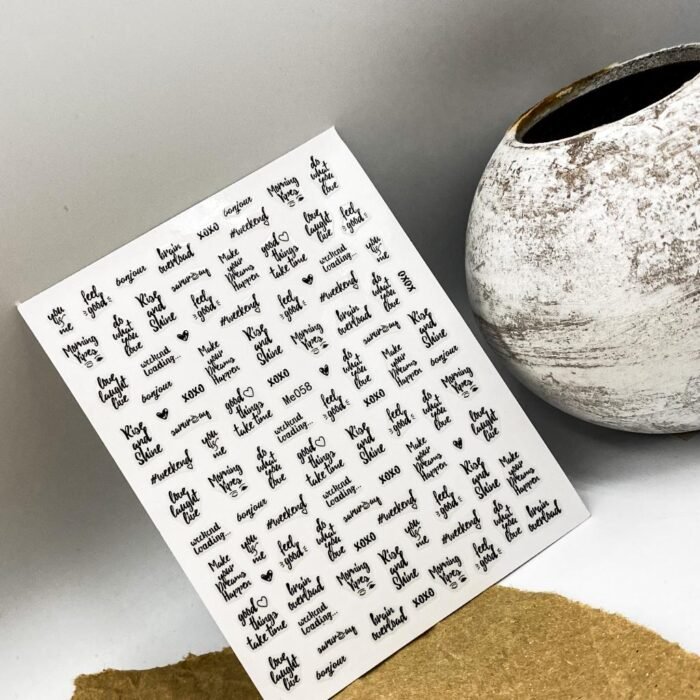 you
&
me
feel
good
bonjour
brain
overload
XOXO
bonjour
Morning
Vibes
do
what
you
love
Morning
Vibes
do
what
you
love
Rise
and
Shine
saturday
feel
good
Make
your
Dreams
Happen
#weekend
good
things
take time
love
laught
live
feel
good
love
laught
live
weekend
loading...
Make
your
Dreams
Happen
#weekend
Rise
and
Shine
feel
good
weekend
loading...
you
&
me
bonjour
XOXO
good
things
take time
XOXO
Morning
Vibes
brain
overload
#weekend
do
what
you
love
XOXO
Rise
and
Shine
saturday
you
&
me
Me058
weekend
loading...
feel
good
do
what
you
love
XOXO
Make
your
Dreams
Happen
bonjour
#weekend
Morning
Vibes
do
what
you
love
good
things
take time
Rise
and
Shine
feel
good
Morning
Vibes
love
laught
live
bonjour
weekend
loading...
XOXO
Make
your
Dreams
Happen
love
laught
live
weekend
loading...
#weekend
do
what
you
love
saturday
feel
good
Rise
and
Shine
Make
your
Dreams
Happen
Make
your
Dreams
Happen
you
&
me
feel
good
XOXO
you
&
me
#weekend
do
what
you
love
brain
overload
good
things
take time
brain
overload
Morning
Vibes
Rise
and
Shine
Morning
Vibes
feel
good
love
laught
live
weekend
loading...
saturday
brain
overload
XOXO
bonjour